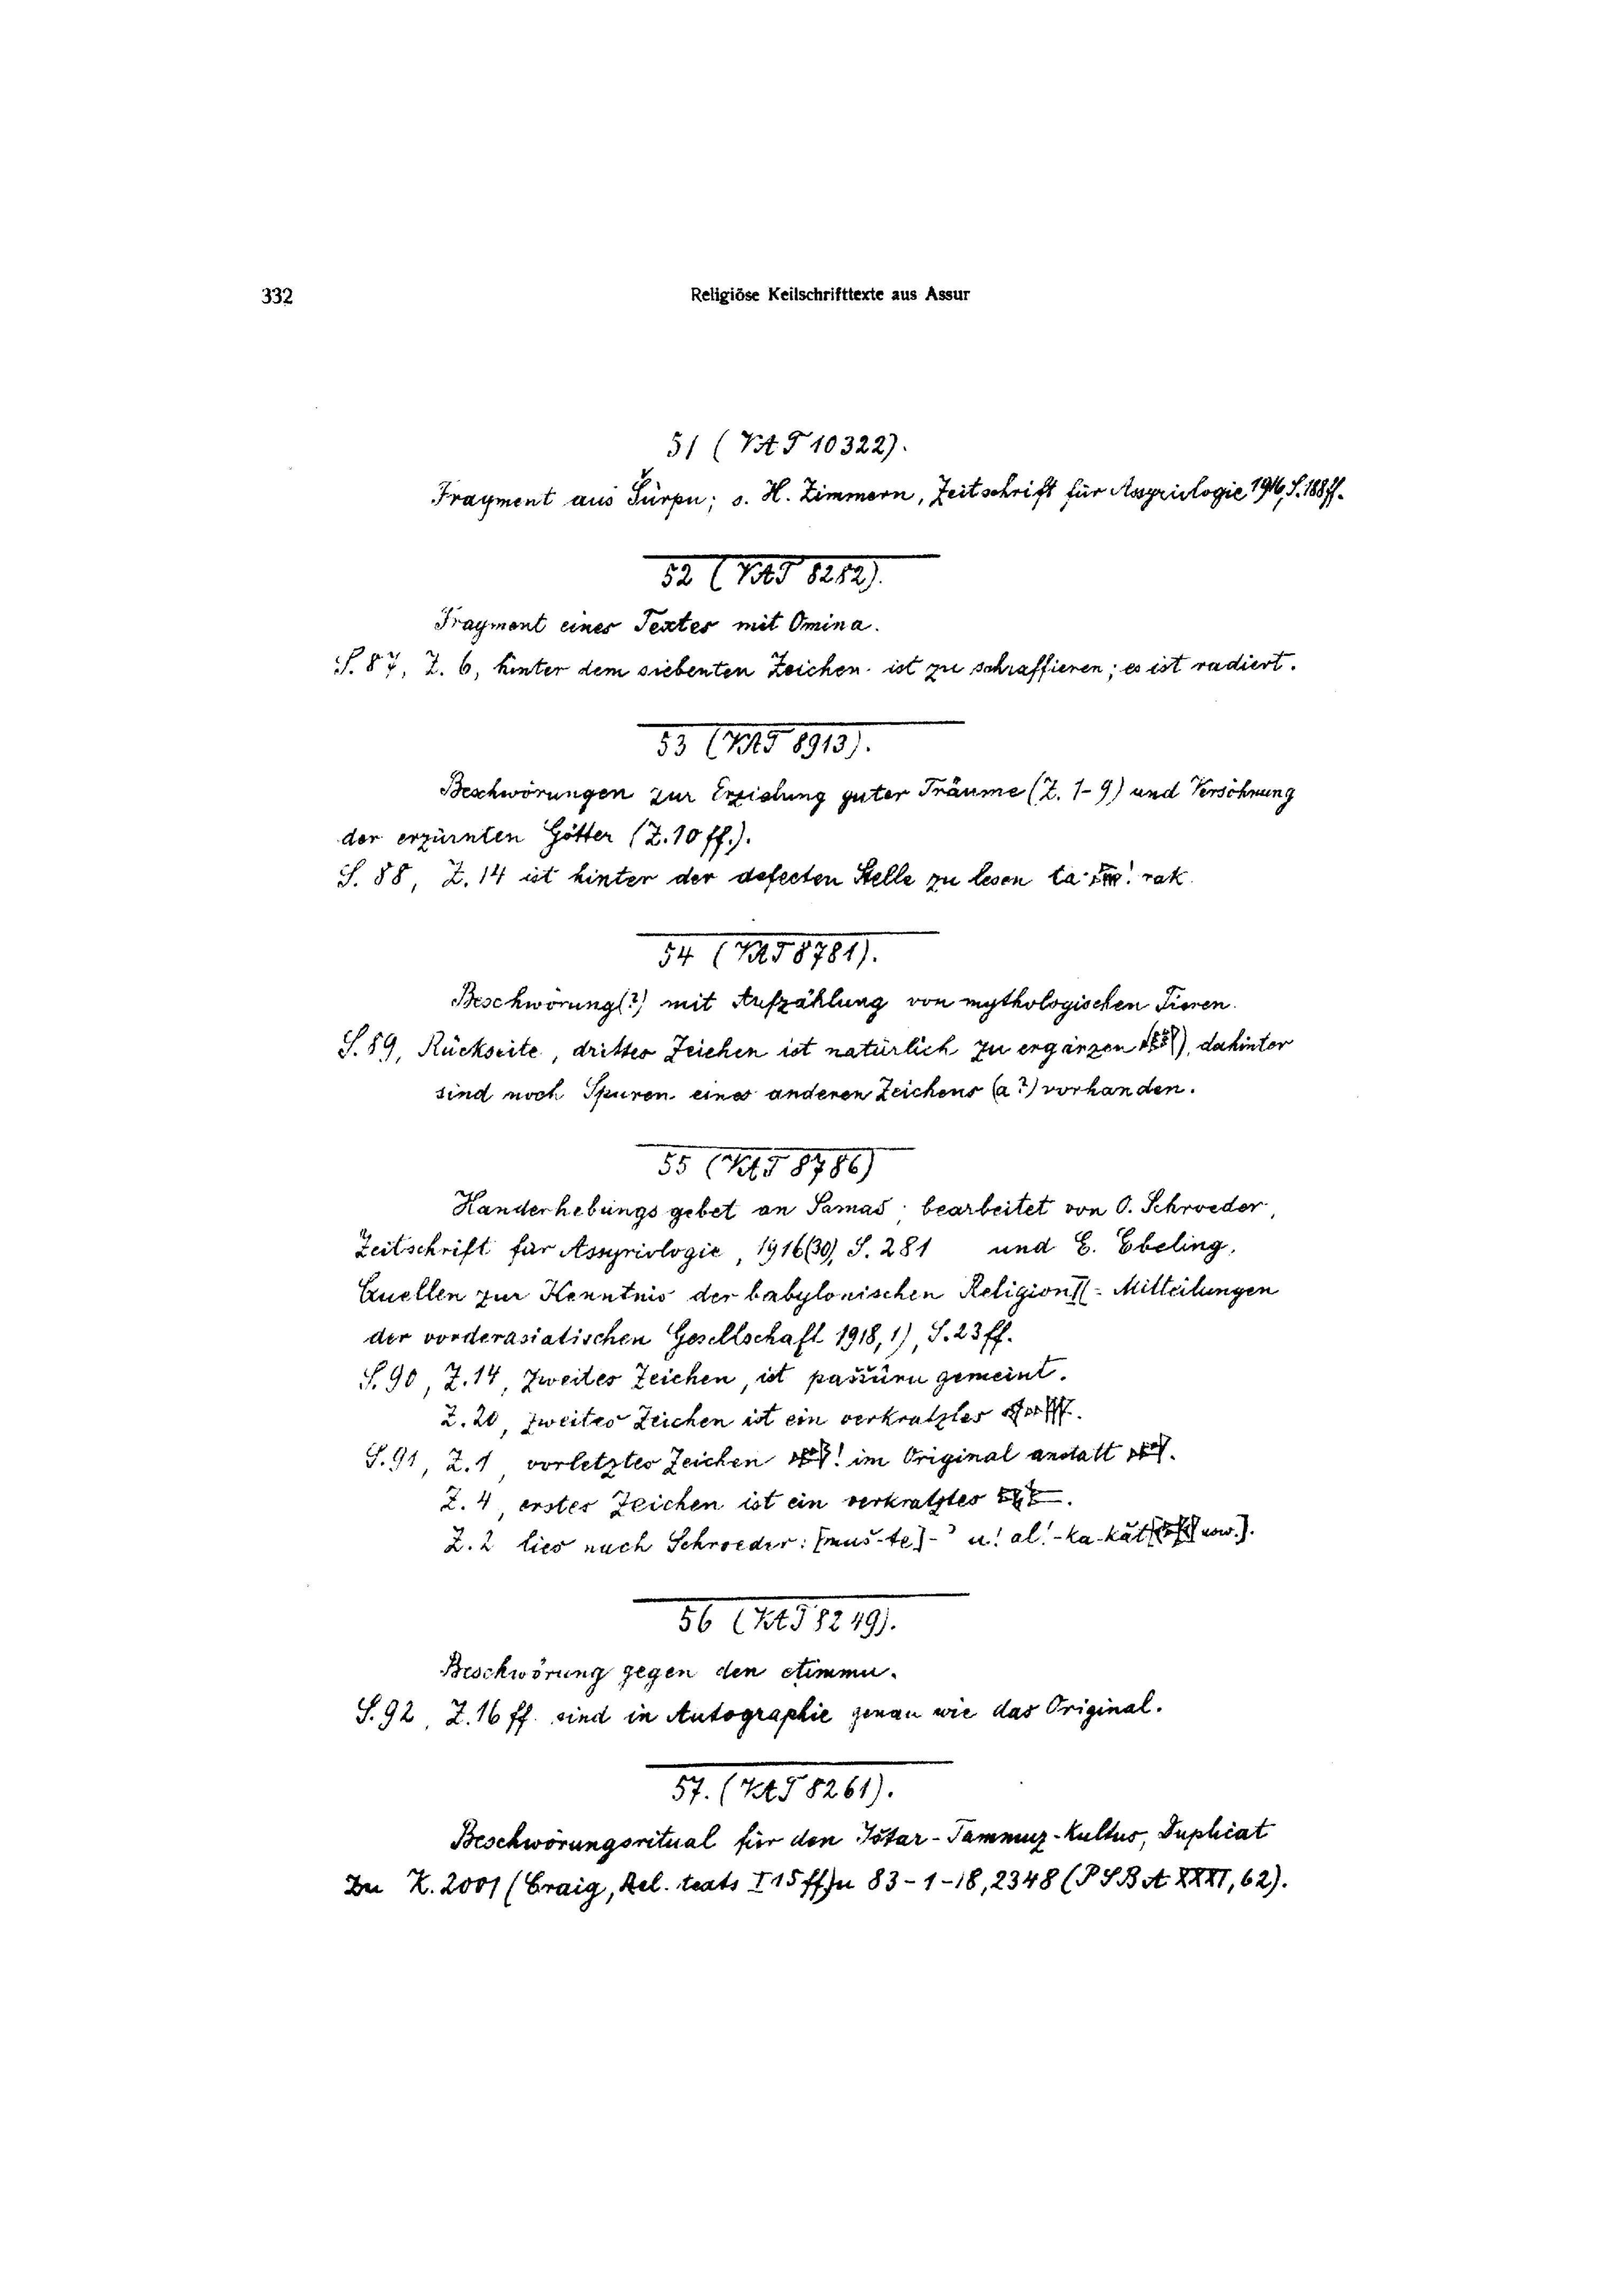 332
Religiöse Keilschrifttexte aus Assur
51 (VAT 10322).
Fragment aus Šurpu; s. H. Zimmern, Zeitschrift für Assyriologie 1916, S. 188 ff.
52 (VAT 8282).
Fragment eines Textes mit Omina.
S. 87, Z. 6, hinter dem siebenten Zeichen ist zu schraffieren; es ist radiert.
53 (VAT 8913).
Beschwörungen zur Erzielung guter Träume (Z. 1-9) und Versöhnung
der erzürnten Götter (Z. 10 ff.).
S. 88, Z. 14 ist hinter der defecten Stelle zu lesen ta- ! rak
54 (VAT 8781).
Beschwörung(?) mit Aufzählung von mythologischen Tieren.
S. 89, Rückseite, drittes Zeichen ist natürlich zu ergänzen ), dahinter
sind noch Spuren eines anderen Zeichens (a?) vorhanden.
55 (VAT 8786)
Handerhebungsgebet an Šamaš bearbeitet von O. Schroeder,
Zeitschrift für Assyriologie, 1916(30), S. 281 und E. Ebeling,
Quellen zur Kenntnis der babylonischen Religion II - Mitteilungen
der vorderasiatischen Gesellschaft 1918, 1), S. 23 ff.
S. 90, Z. 14, zweites Zeichen, ist paššūru gemeint.
Z. 20, zweites Zeichen ist ein verkratztes .
S. 91, Z. 1 vorletztes Zeichen ! im Original anstatt .
Z. 4, erstes Zeichen ist ein verkratztes .
Z. 2 lies nach Schroeder: [muš-te]-' u! al!-ka-kāt[ usw.].
56 (VAT 8249).
Beschwörung gegen den eṭimmu.
S. 92, Z. 16 ff. sind in Autographie genau wie das Original.
57. (VAT 8261).
Beschwörungsritual für den Ištar-Tammuz-Kultus, Duplicat
Zu K. 2001 (Craig, Rel. texts I 15 ff) u 83-1-18, 2348 (PSBA XXXI, 62).